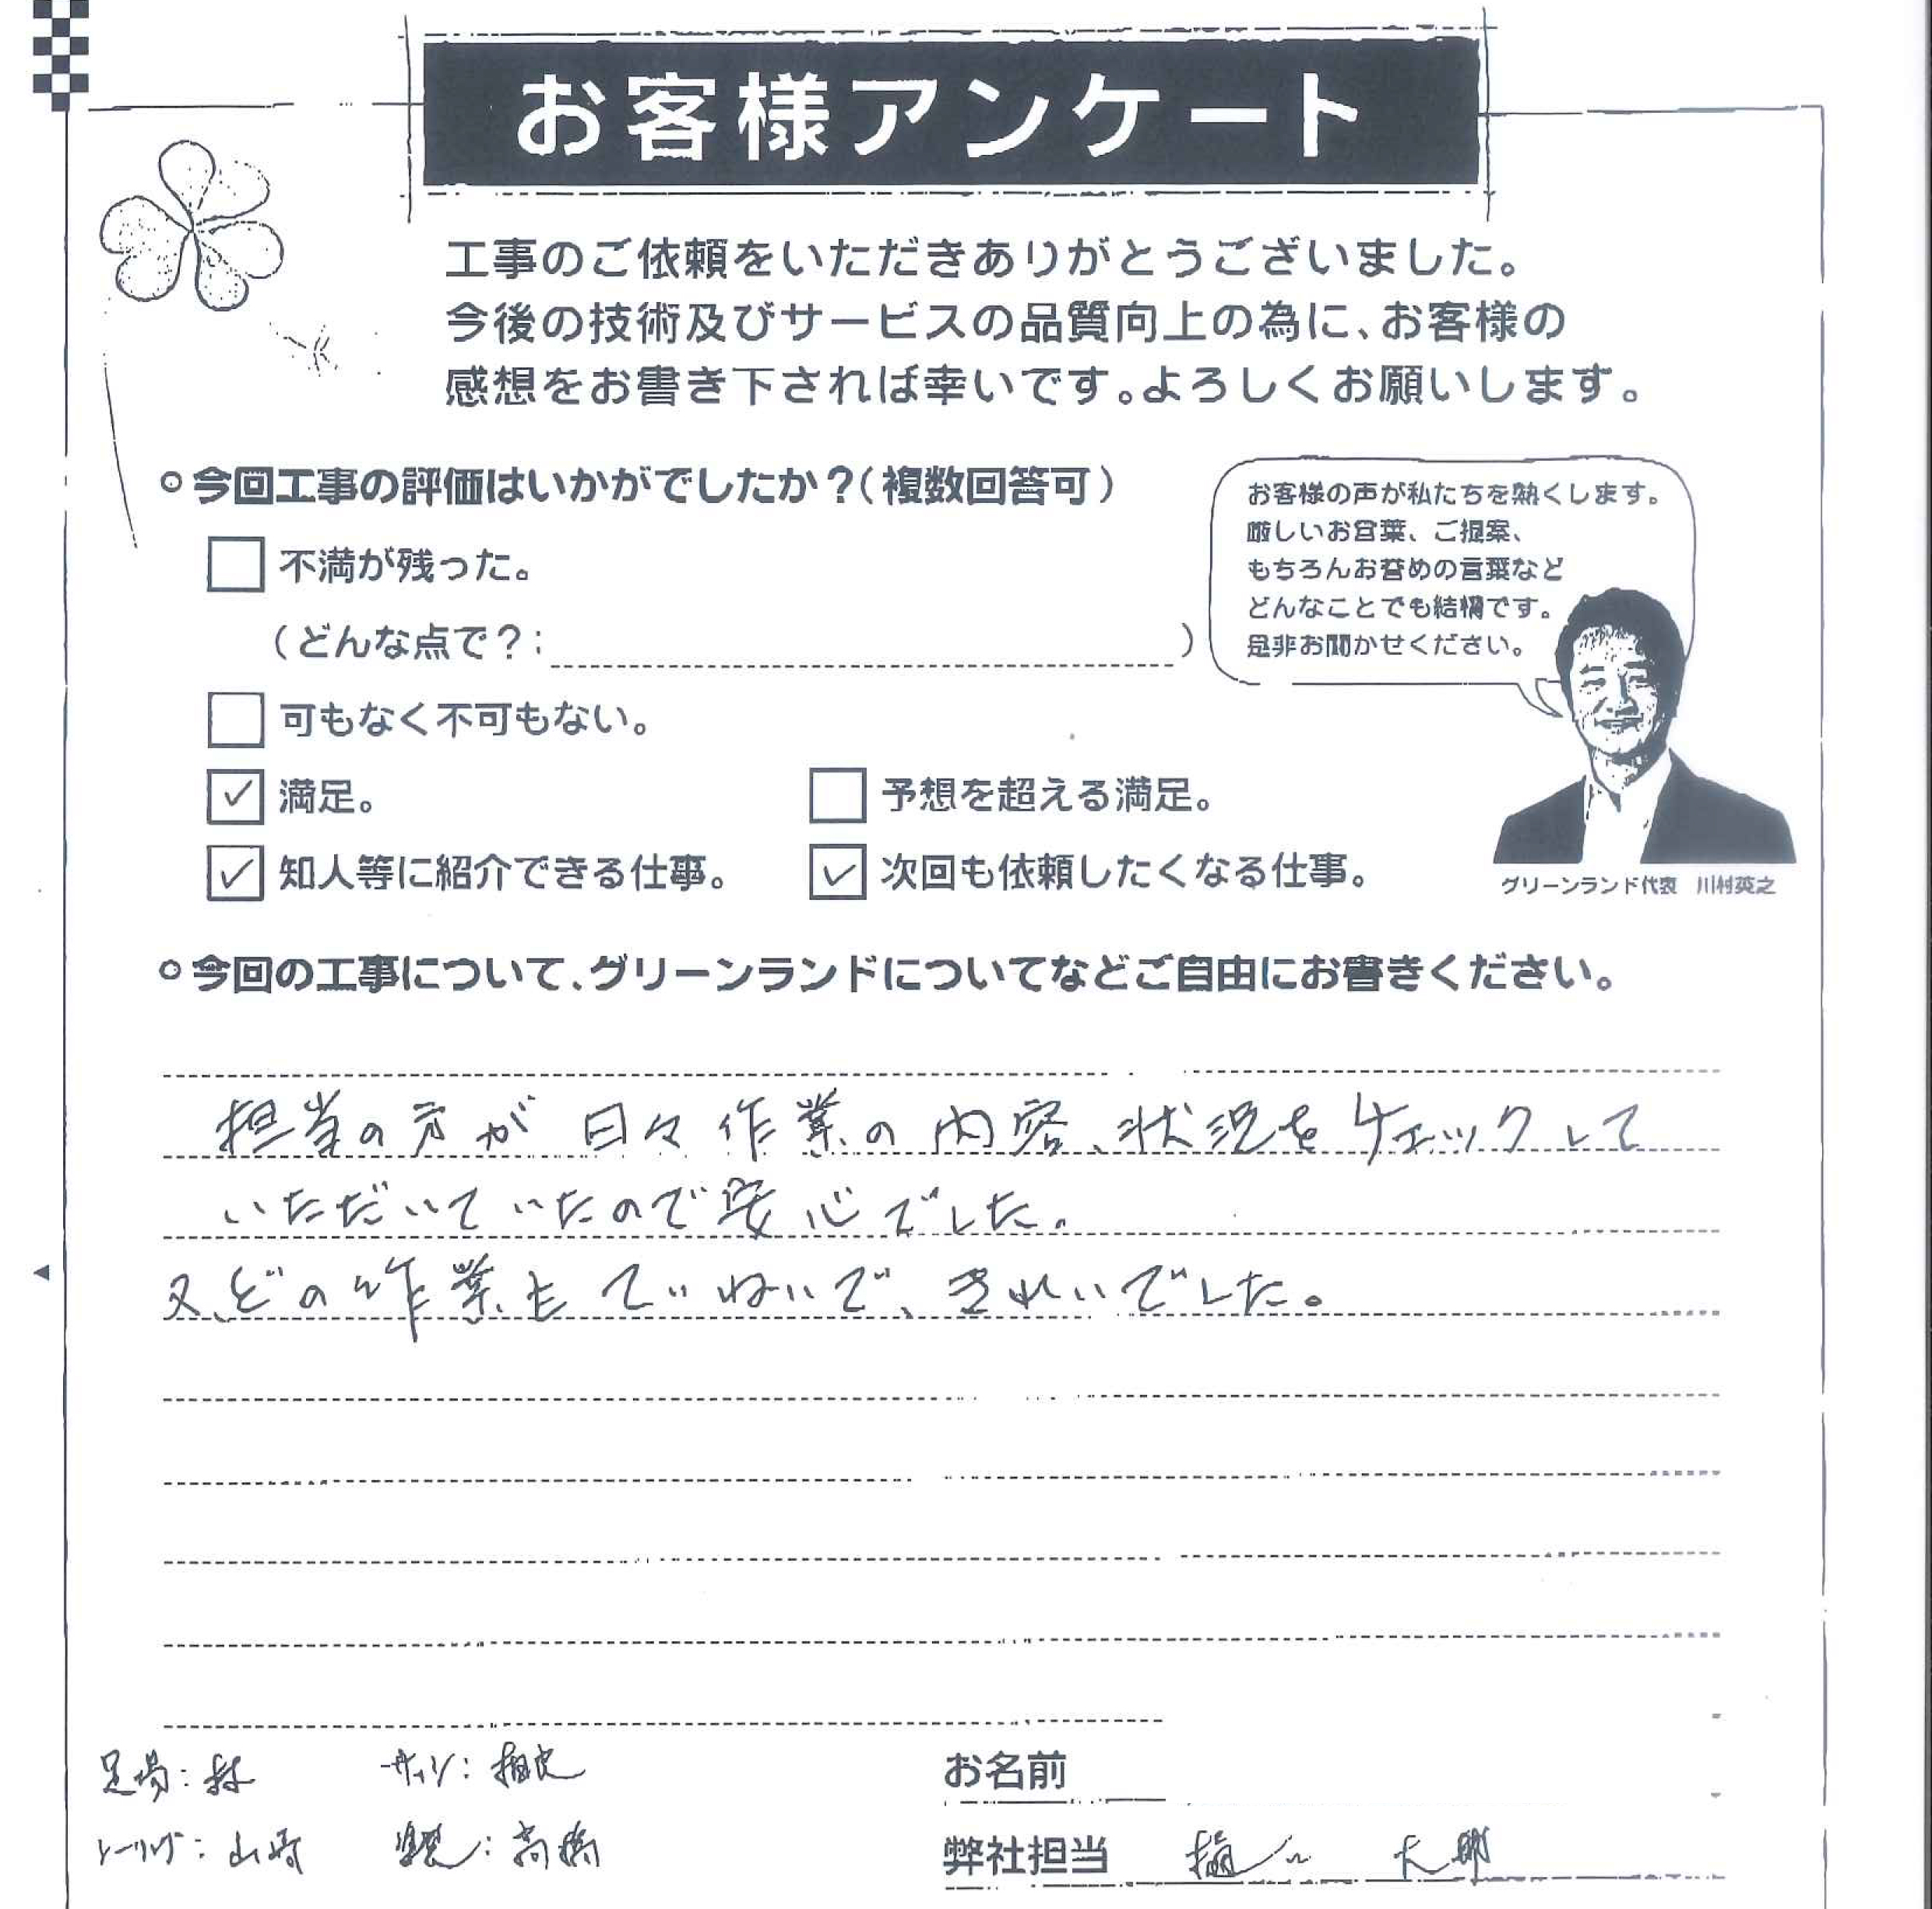 お客様アンケート
工事のご依頼をいただきありがとうございました。
今後の技術及びサービスの品質向上の為に、お客様の
感想をお書き下されば幸いです。よろしくお願いします。
今回工事の評価はいかがでしたか?(複数回答可)
不満が残った。
(どんな点で?: )
可もなく不可もない。
満足。
予想を超える満足。
知人等に紹介できる仕事。
次回も依頼したくなる仕事。
お客様の声が私たちを熱くします。
厳しいお言葉、ご提案、
もちろんお誉めの言葉など
どんなことでも結構です。
是非お聞かせください。
グリーンランド代表 川村英之
今回の工事について、グリーンランドについてなどご自由にお書きください。
担当の方が日々作業の内容、状況をチェックして
いただいていたので安心でした。
又、どの作業もていねいで、きれいでした。
足場:林
シーリング:山崎
:高橋
お名前
弊社担当